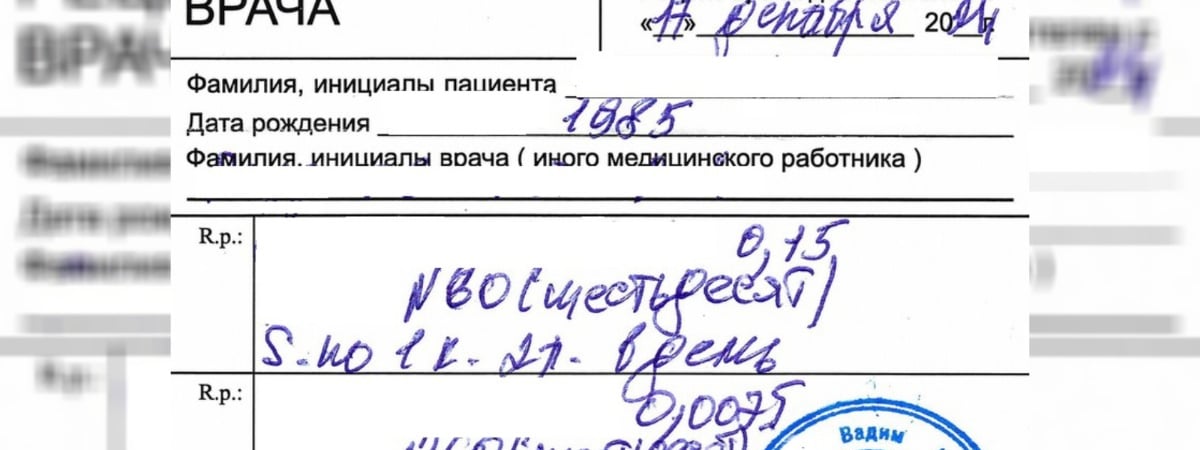 ВРАЧА
«17» декабря 2024 г.
Фамилия, инициалы пациента
Дата рождения 1985
Фамилия, инициалы врача ( иного медицинского работника )
R.p.: 0,15
N 60 (шестьдесят)
S. по 1 к. 2 р. в день
R.p.: 0,0075
Вадим